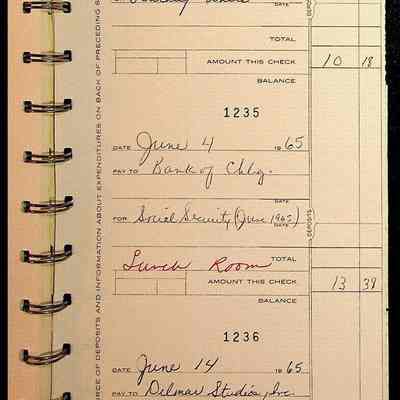 DATE
TOTAL
AMOUNT THIS CHECK 10 18
BALANCE
1235
DATE June 4 1965
PAY TO Bank of Chbg.
DATE
FOR Social Security (June 1965)
DATE
DEPOSITS
Lunch Room TOTAL
AMOUNT THIS CHECK 13 38
BALANCE
1236
DATE June 14 1965
PAY TO Delmar Studios, Inc.
RCE OF DEPOSITS AND INFORMATION ABOUT EXPENDITURES ON BACK OF PRECEDING S